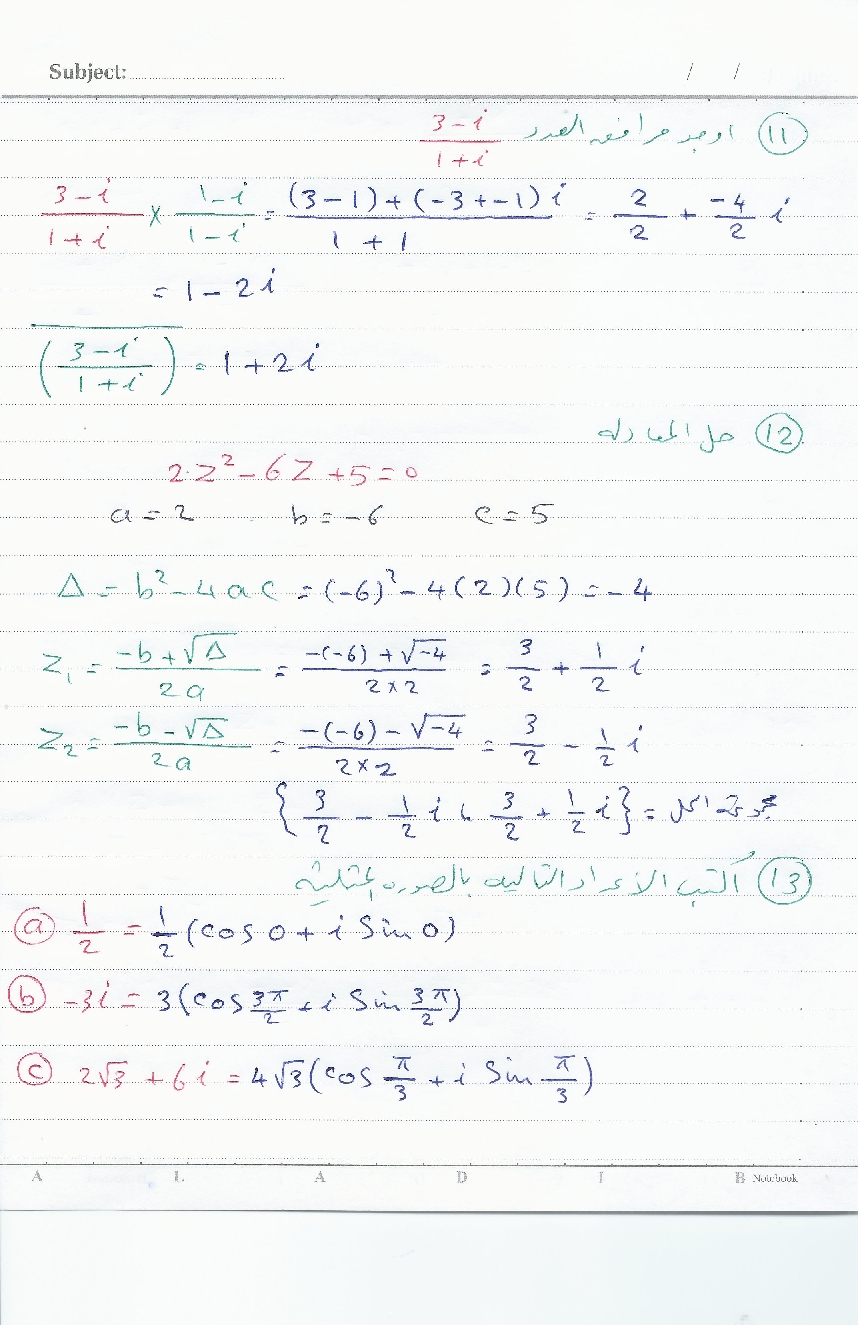 Subject: / /
(11) اوجد مرافق العدد (3-i)/(1+i)
(3-i)/(1+i) × (1-i)/(1-i) = ((3-1)+(-3+-1)i)/(1+1) = 2/2 + -4/2 i
= 1-2i
\overline{((3-i)/(1+i))} = 1+2i
(12) حل المعادله
2z²-6z+5=0
a=2 b=-6 c=5
Δ = b²-4ac = (-6)²-4(2)(5) = -4
z₁ = (-b+√Δ)/(2a) = (-(-6)+√-4)/(2×2) = 3/2 + 1/2 i
z₂ = (-b-√Δ)/(2a) = (-(-6)-√-4)/(2×2) = 3/2 - 1/2 i
مجموعة الحل = {3/2 + 1/2 i ، 3/2 - 1/2 i}
(13) أكتب الأعداد التاليه بالصوره المثلثيه
(a) 1/2 = 1/2 (cos 0 + i Sin 0)
(b) -3i = 3(cos 3π/2 + i Sin 3π/2)
(c) 2√3 + 6i = 4√3(cos π/3 + i Sin π/3)
A L A D I B Notebook